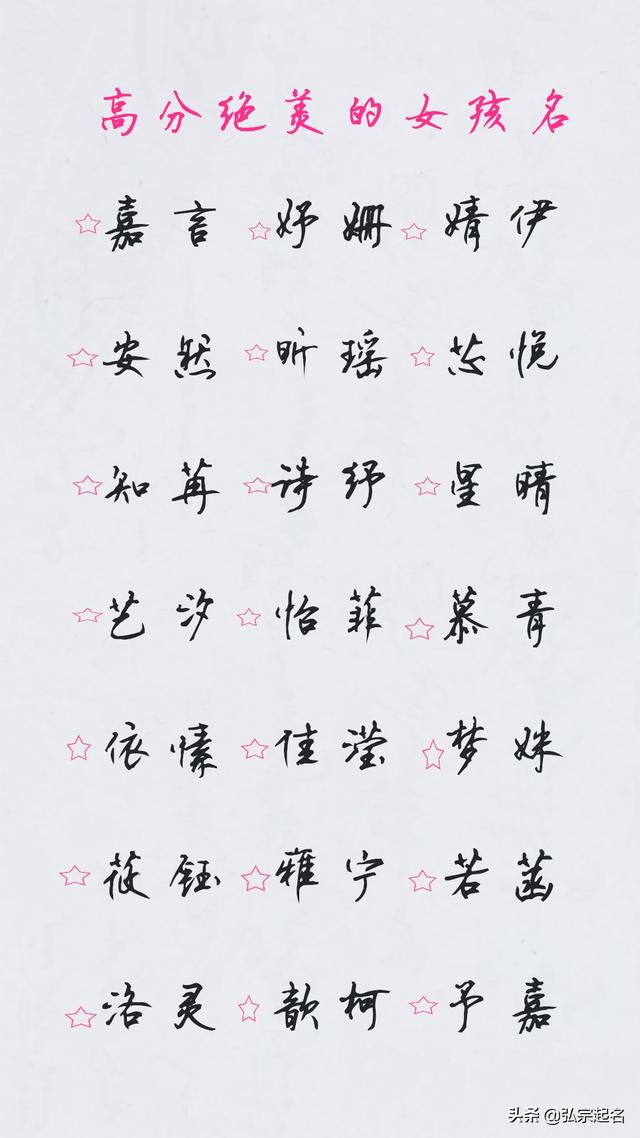 高分绝美的女孩名
嘉言 妤姗 婧伊
安然 昕瑶 芯悦
知苒 诗纾 星晴
艺汐 怡菲 慕青
依愫 佳滢 梦姝
莜钰 雅宁 若菡
洛灵 歆柯 予嘉
头条 @弘宗起名